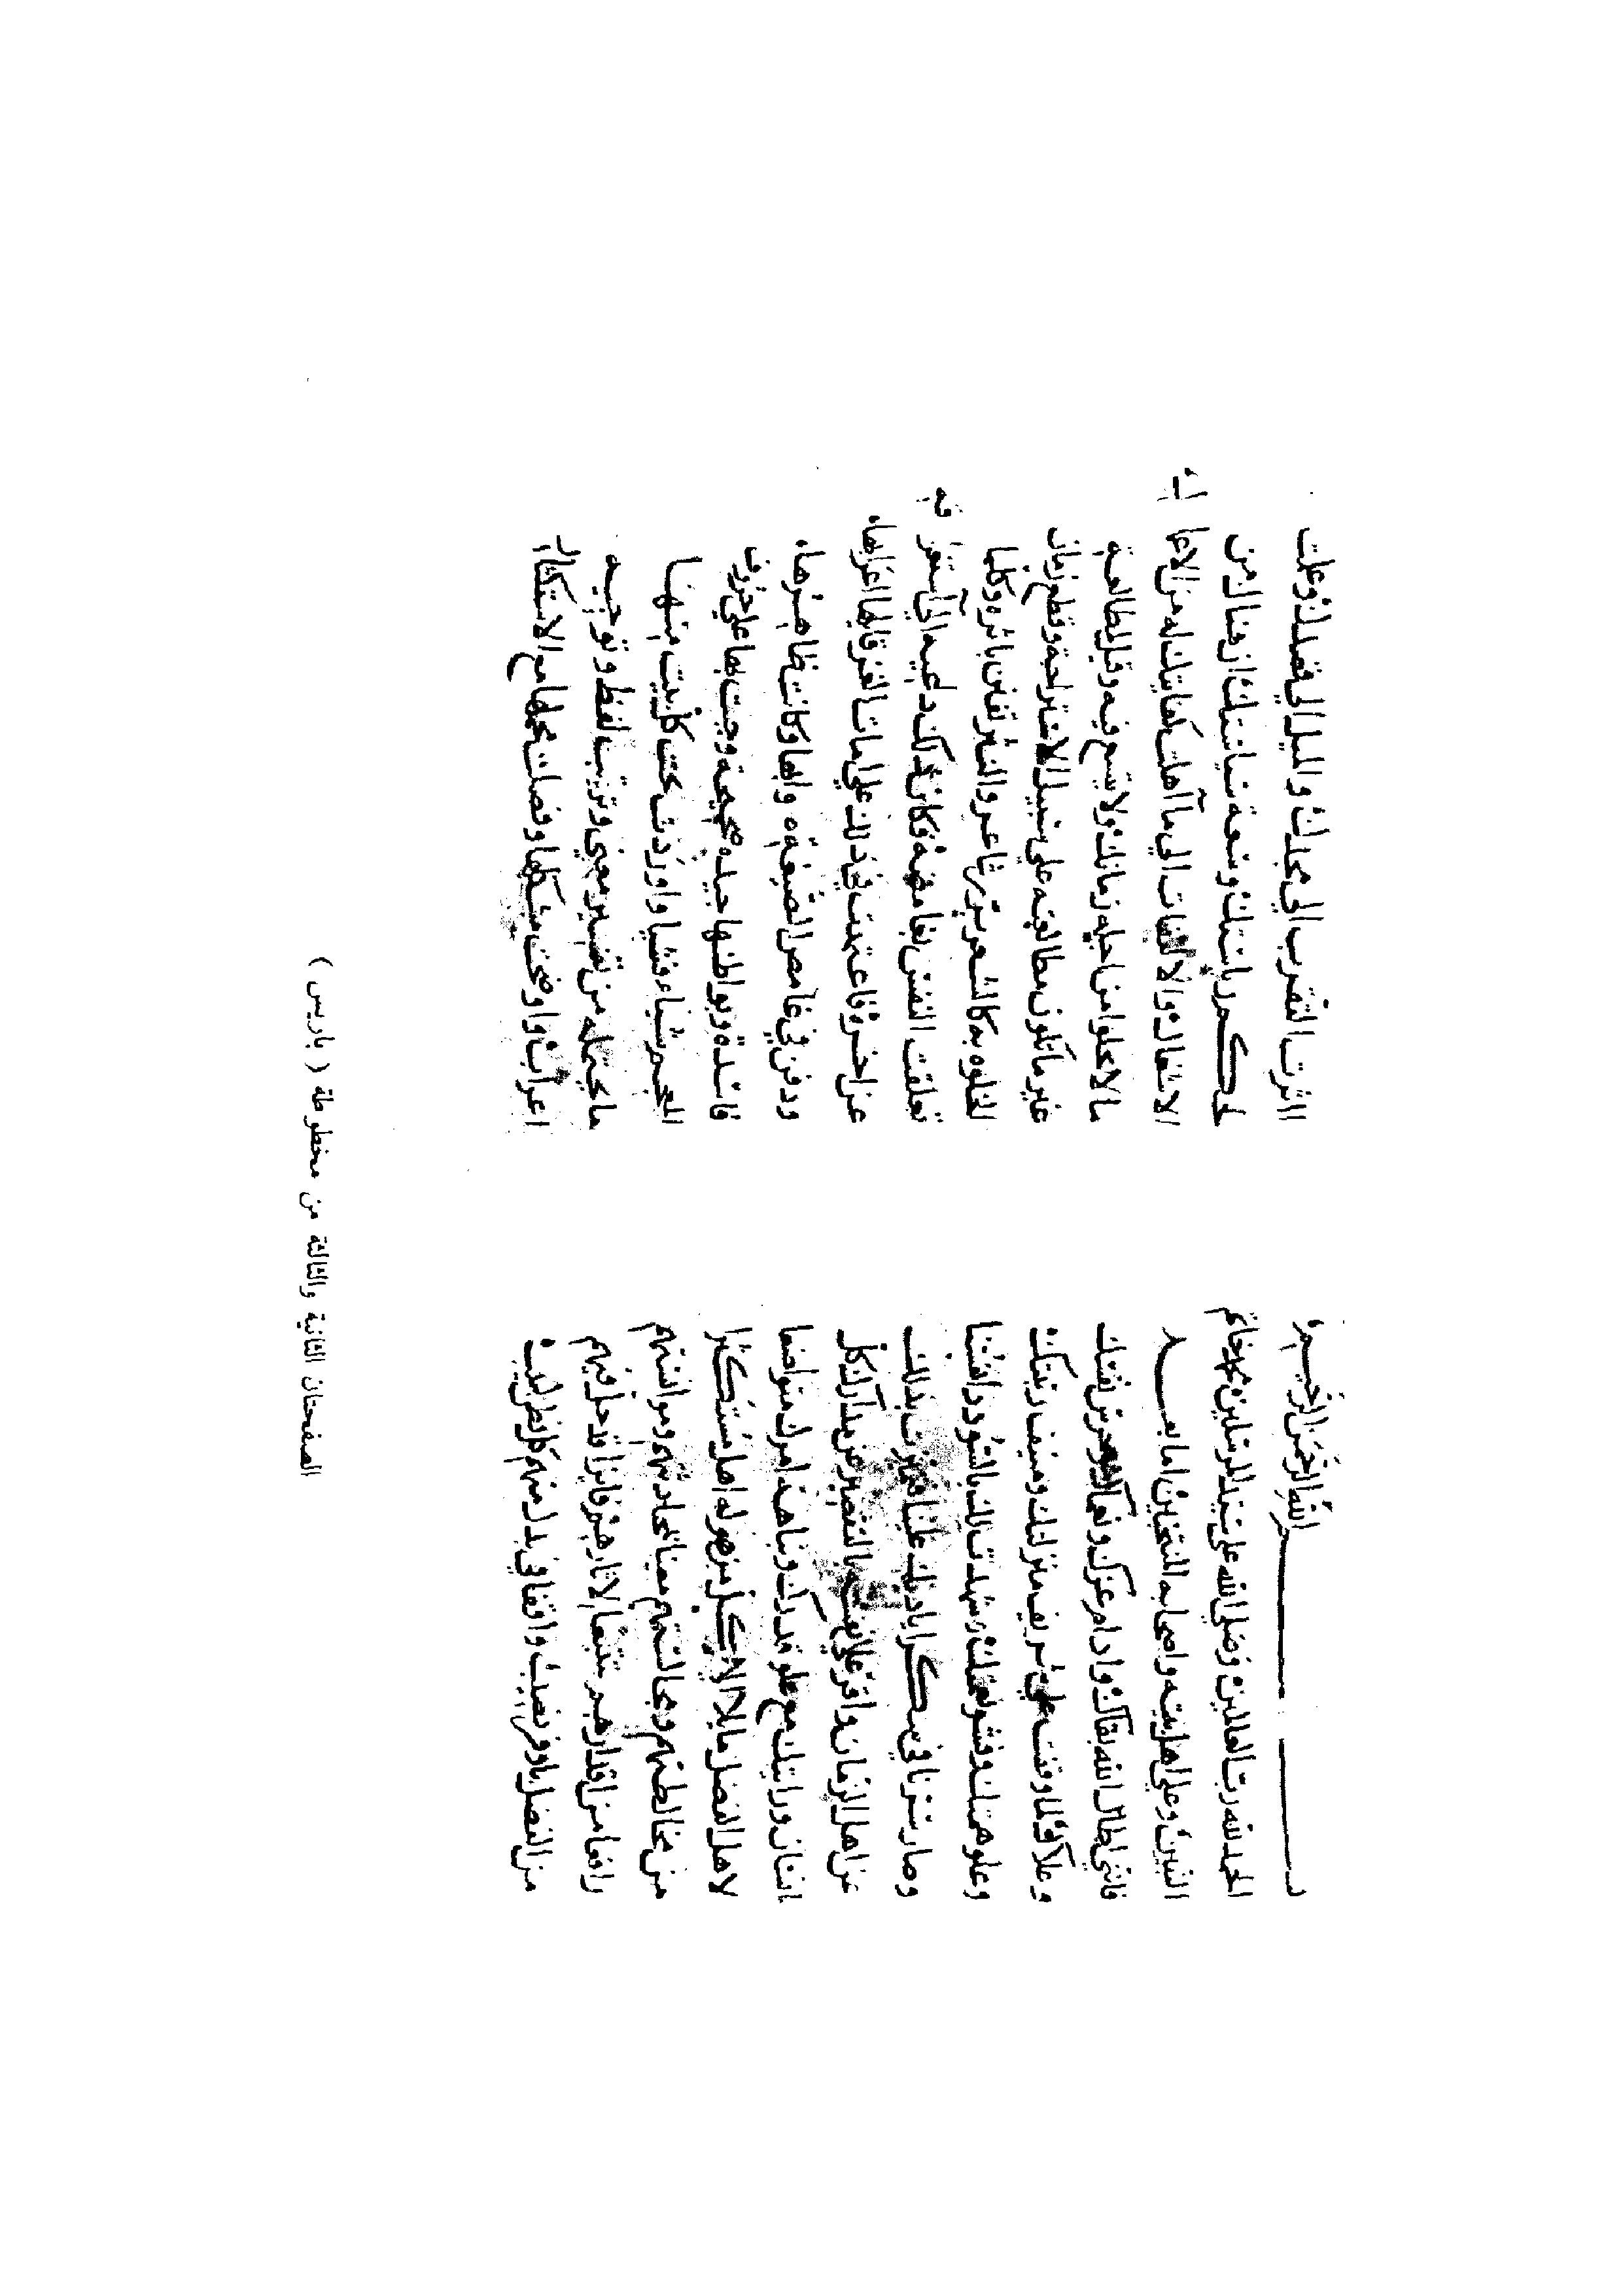 بسم الله الرحمن الرحيم
الحمد لله رب العالمين وصلى الله على سيد المرسلين محمد خاتم
النبيين وعلى اهل بيته واصحابه المنتخبين اما بعد
فانني اطال الله بقاك وادام عزك ونعماك وحرس نعمتك
وعلاك لما وقفت على شريف منزلتك ومنيف رتبتك
وعلو همتك وفشو نعمتك شهدت لك بالسؤدد افئدتنا
وصار شكرا ياديك علينا
عن اهل الزمان واقر على نفسه بالتقصير عن مداك كل
انسان ورايتك مع علو قدرك ونباهة امرك متواضعا
لاهل الفضل مايلا الى كل من هو له اهل مستكثرا
من مخالطتهم ومجالستهم معنيا بمحادثتهم وموانستهم
رافعا من اقدارهم متتبعا لاثارهم فايزا قد حل فيهم
من الفضل باوفر نصيب واقفا في بدل منهم كل نظر
اثرت التقرب الى مجدك والميل الى قصدك وعلمت
ان هناك من
الانتقال والالتفات الى ما اهلت كفايتك له من الاعمال
ما لا تخلوا من اجله زمانك ولا يتسع فيه وقت لمطالعة
غير ما تكون مطالعته على سبيل الاستراحة وقطع زمان
الخلوه به كالشعر بين شاعر والنثر تفنن ناثره وكلما
تعلقت النفس بغامضه فكان ذلك داعيه الى استغراقه
عن اخره فاعتمدت في ذلك على ابيات الغز قايلها اعرابها
ودفن في غامض الصنعة صوابها وكانت ظاهرها
فاسدة وبواطنها جيده صحيحة وجيت بها على حروف
المعجم شيا فشيا واوردت تحت كل بيت منها
ما يحتمله من تفسير معنى وترتيب لفظ وتوجيه
اعراب واوضحت مشكلها وفصلت مجملها مع الاستكثار
الصفحتان الثانية والثالثة من مخطوطة ( باريس )